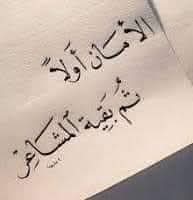 الأمان أولاً
ثم بقية المشاعر